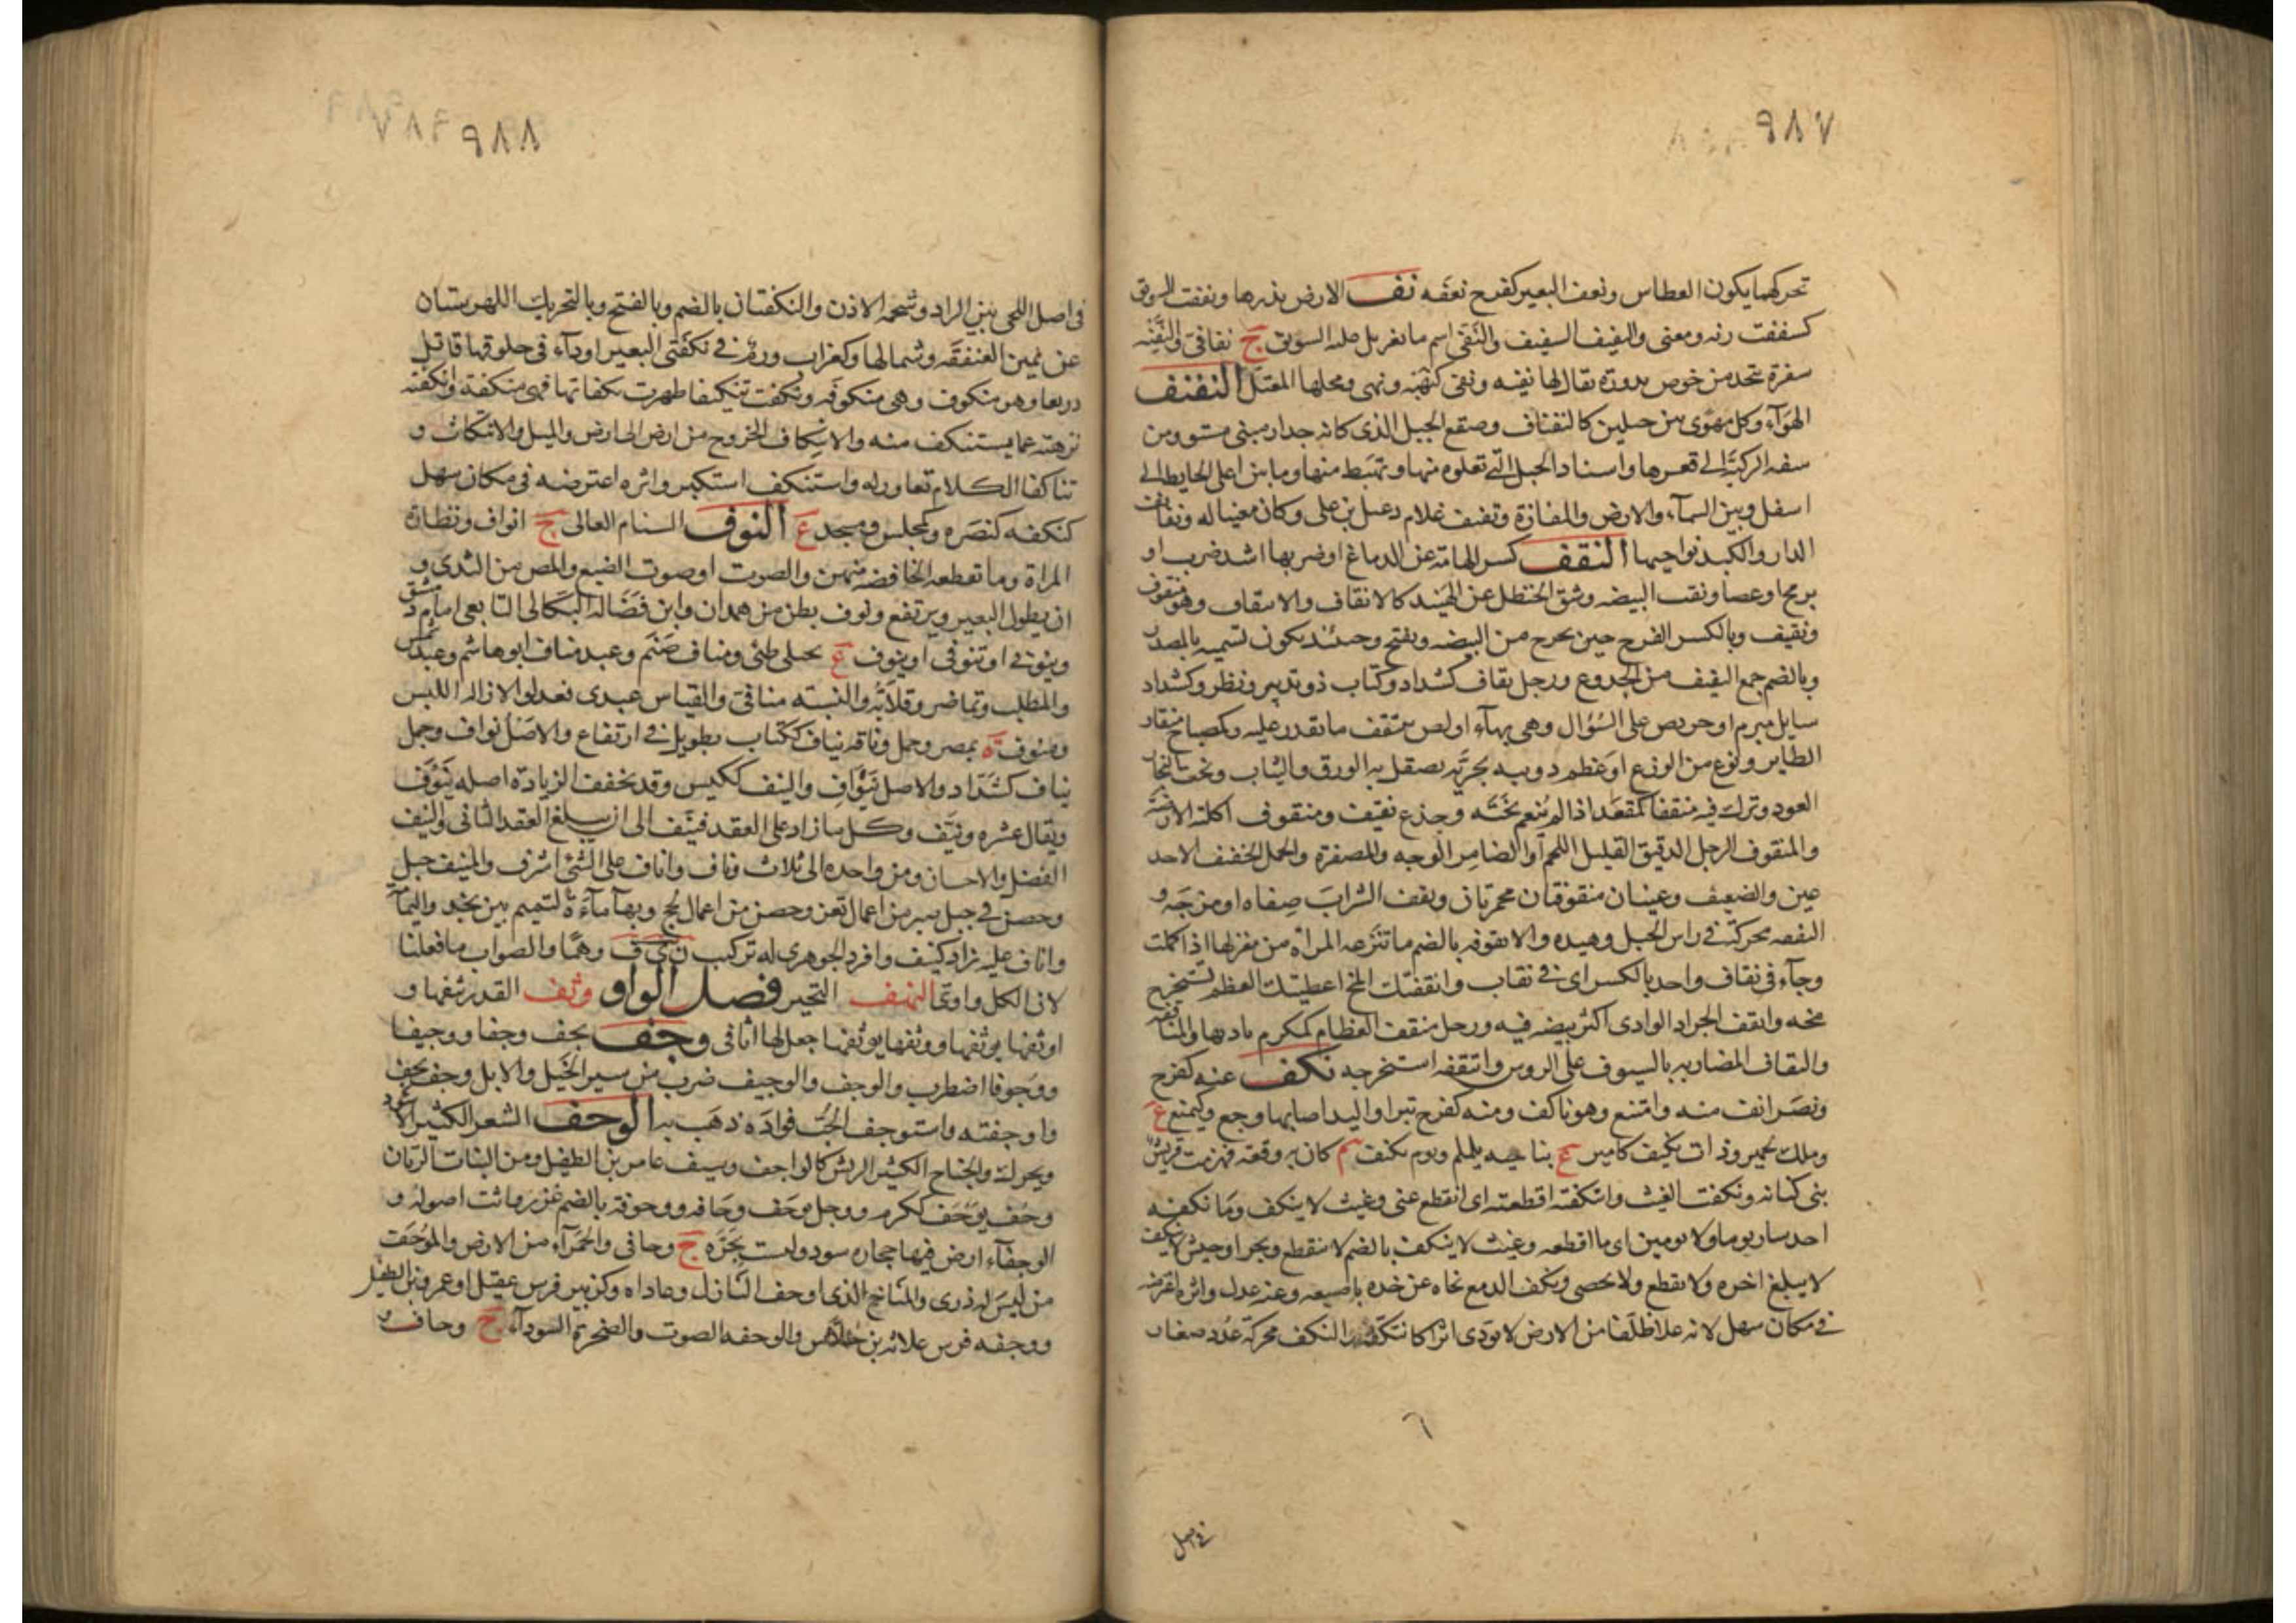 ٩٨٧
تحركهما يكون العطاس ونعف البعير كفرح نعفه نف الارض بذرها ونففت السويق
كسففت زنه ومعنى والنفيف السفيف والنفى اسم ما تغربل من السويق ج نفافى والنفيه
سفرة تتخذ من خوص مدورة يقال لها نفيه ونفى كنهيه ونهى ومحلها المعتل النفنف
الهوآء وكل مهوى بين جبلين كالنفناف وصقع الجبل الذى كانه جدار مبنى مستو ومن
شفه الركية الى قعرها واسناد الجبل التى تعلوه منها وتهبط منها وما بين اعلى الحايط الى
اسفل وبين السمآء والارض والمفازة ونفنف غلام دعبل بن على وكان مغنيا له ونفانف
الدار والكبد نواحيها النقف كسر الهامة عن الدماغ او ضربها اشد ضرب او
برمح او عصا ونقب البيضه وشق الحنظل عن الهبيد كالانقاف والانتقاف وهو منقوف
ونقيف وبالكسر الفرخ حين يخرج من البيضه ويفتح وحينئذ يكون تسميه بالمصدر
وبالضم جمع النقيف من الجذوع ورجل نقاف كشداد وكتاب ذو تدبير ونظر وكشداد
سايل مبرم او حريص على السؤال وهى بهآء او لص ينتقف ما يقدر عليه وكمصباح منقار
الطاير ونوع من الوزغ او عظم دويبه بحريه يصقل به الورق والثياب ونحت النجار
العود وترك فيه منقفا كمقعد اذا لم ينعم نحته وجذع نقيف ومنقوف اكلته الارضة
والمنقوف الرجل الدقيق القليل اللحم او الضامر الوجه والمصفرة والجمل الخفيف الاخد
عين والضعيف وعينان منقوفتان محمرتان ونقف الشراب صفاه او مزجه و
النقفه محركة فى راس الجبل وهيده والانقوفه بالضم ما تنزعه المراة من مغزلها اذا كملت
وجآء فى نقاف واحد بالكسر اى فى نقاب وانقفتك المخ اعطيتك العظم تستخرج
مخه وانقف الجراد الوادى اكثر بيضه فيه ورجل منقف العظام كمكرم باديها والمناقفه
والنقاف المضاربه بالسيوف على الروس وانتقفه استخرجه نكف عنه كفرح
ونصر انف منه وامتنع وهو ناكف ومنه كفرح تبرا واليد اصابها وجع وكيمنع ع
وملك لحمير وذات نكيف كامير ع بناحيه يلملم ويوم نكيف م كان به وقعة فهزمت قريش
بنى كنانه ونكفت الغيث وانتكفته اقطعته اى انقطع عنى وغيث لا ينكف وما نكفه
احد سار يوما ولا يومين اى ما اقطعه وغيث لا ينكف بالضم لا ينقطع وبحر او جيش لا ينكف
لا يبلغ اخره ولا يقطع ولا يحصى ونكف الدمع نحاه عن خده باصبعه وعنه عدل واثره اعترضه
فى مكان سهل لانه علا ظلفا من الارض لا يودى اثرا كانتكفه والنكف محركة غدد صغار
فى اصل
٩٨٨
فى اصل اللحى بين الراد وشحمة الاذن والنكفتان بالضم وبالفتح وبالتحريك اللهزمتان
عن يمين العنفقه وشمالها وكغراب ورم فى نكفتى البعير او دآء فى حلوقها قاتل
ذريعا وهو منكوف وهى منكوفه ونكفت تنكيفا ظهرت نكفاتها فهى منكفة وانكفته
نزهته عما يستنكف منه والانتكاف الخروج من ارض الى ارض والميل والانتكاث و
تناكفا الكلام تعاوراه واستنكف استكبر واثره اعترضه فى مكان سهل
كنكفه كنصره وكمجلس ومسجد ع النوف السنام العالى ج انواف وبظارة
المراة وما تقطعه الخافضه منهن والصوت او صوت الضبع والمص من الثدى و
ان يطول البعير ويرتفع ونوف بطن من همدان وابن فضالة البكالى التابعى امام دمشق
وينوفى او تنوفى او ينوف ع بجبلى طئ ومناف صنم وعبد مناف ابو هاشم وعبد شمس
والمطلب وتماضر وقلابة والنسبته منافى والقياس عبدى فعدلوا لازالة اللبس
ومنوف ة بمصر وجمل وناقه نياف ككتاب طويل فى ارتفاع والاصل نواف وجمل
نياف كشداد والاصل نيواف والنيف ككيس وقد يخفف الزيادة اصله نيوف
ويقال عشره ونيف وكل ما زاد على العقد فنيف الى ان يبلغ العقد الثانى والنيف
الفضل والاحسان ومن واحدة الى ثلاث وناف واناف على الشئ اشرف والمنيف جبل
وحصن فى جبل صبر من اعمال تعز وحصن من اعمال لحج وبهآ مآءة لتميم بين نجد واليمامة
واناف عليه زاد كنيف وافرد الجوهرى له تركيب ن ى ف وهما والصواب ما فعلنا
لان الكل واوى النهف التحير فصل الواو وثف القدر يثفها و
اوثفها يوثفها ووثفها يوثفها جعل لها اثافى وجف يجف وجفا ووجيفا
ووجوفا اضطرب والوجف والوجيف ضرب من سير الخيل والابل وجف يجف
واوجفته واستوجف الحب فواده ذهب به الوحف الشعر الكثير الاسود
ويحرك والجناح الكثير الريش كالواحف وسيف عامر بن الطفيل ومن النبات الريان
وحف يوحف ككرم ووجل وحف وحافه ووحوفة بالضم غزر واثت اصوله و
الوحفآء ارض فيها حجاره سود وليست بحرة ج وحافى والحمرآء من الارض والموحف
من ليس له ذرى والمناخ الذى اوحف البازل وعاداه وكزبير فرس عقيل او عمرو بن الطفيل
ووحفه فرس علاثه بن خلاس والوحفه الصوت والصخرة السودآء ج وحاف